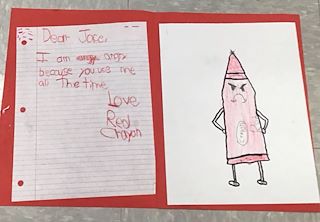 Dear Jake,
I am angry
because you use me
all The time
Love
Red
Crayon